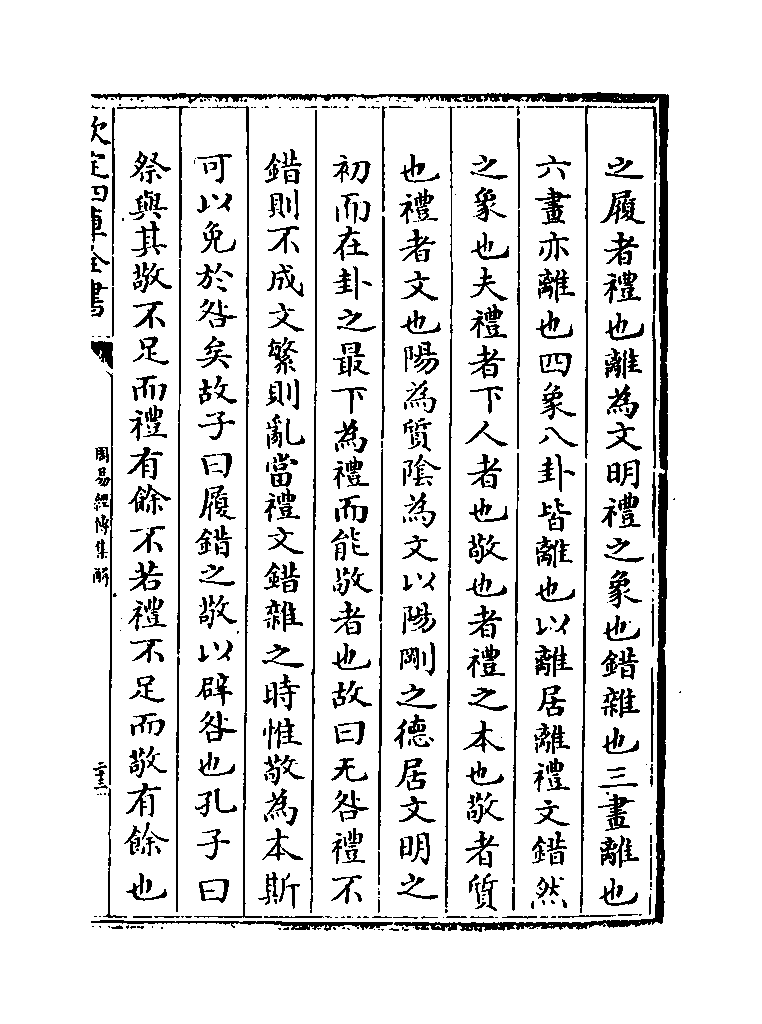 之履者禮也離為文明禮之象也錯雜也三畫離也
六畫亦離也四象八卦皆離也以離居離禮文錯然
之象也夫禮者下人者也敬也者禮之本也敬者質
也禮者文也陽為質陰為文以陽剛之德居文明之
初而在卦之最下為禮而能敬者也故曰无咎禮不
錯則不成文繁則亂當禮文錯雜之時惟敬為本斯
可以免於咎矣故子曰履錯之敬以辟咎也孔子曰
祭與其敬不足而禮有餘不若禮不足而敬有餘也
欽定四庫全書
周易經傳集解
二十三